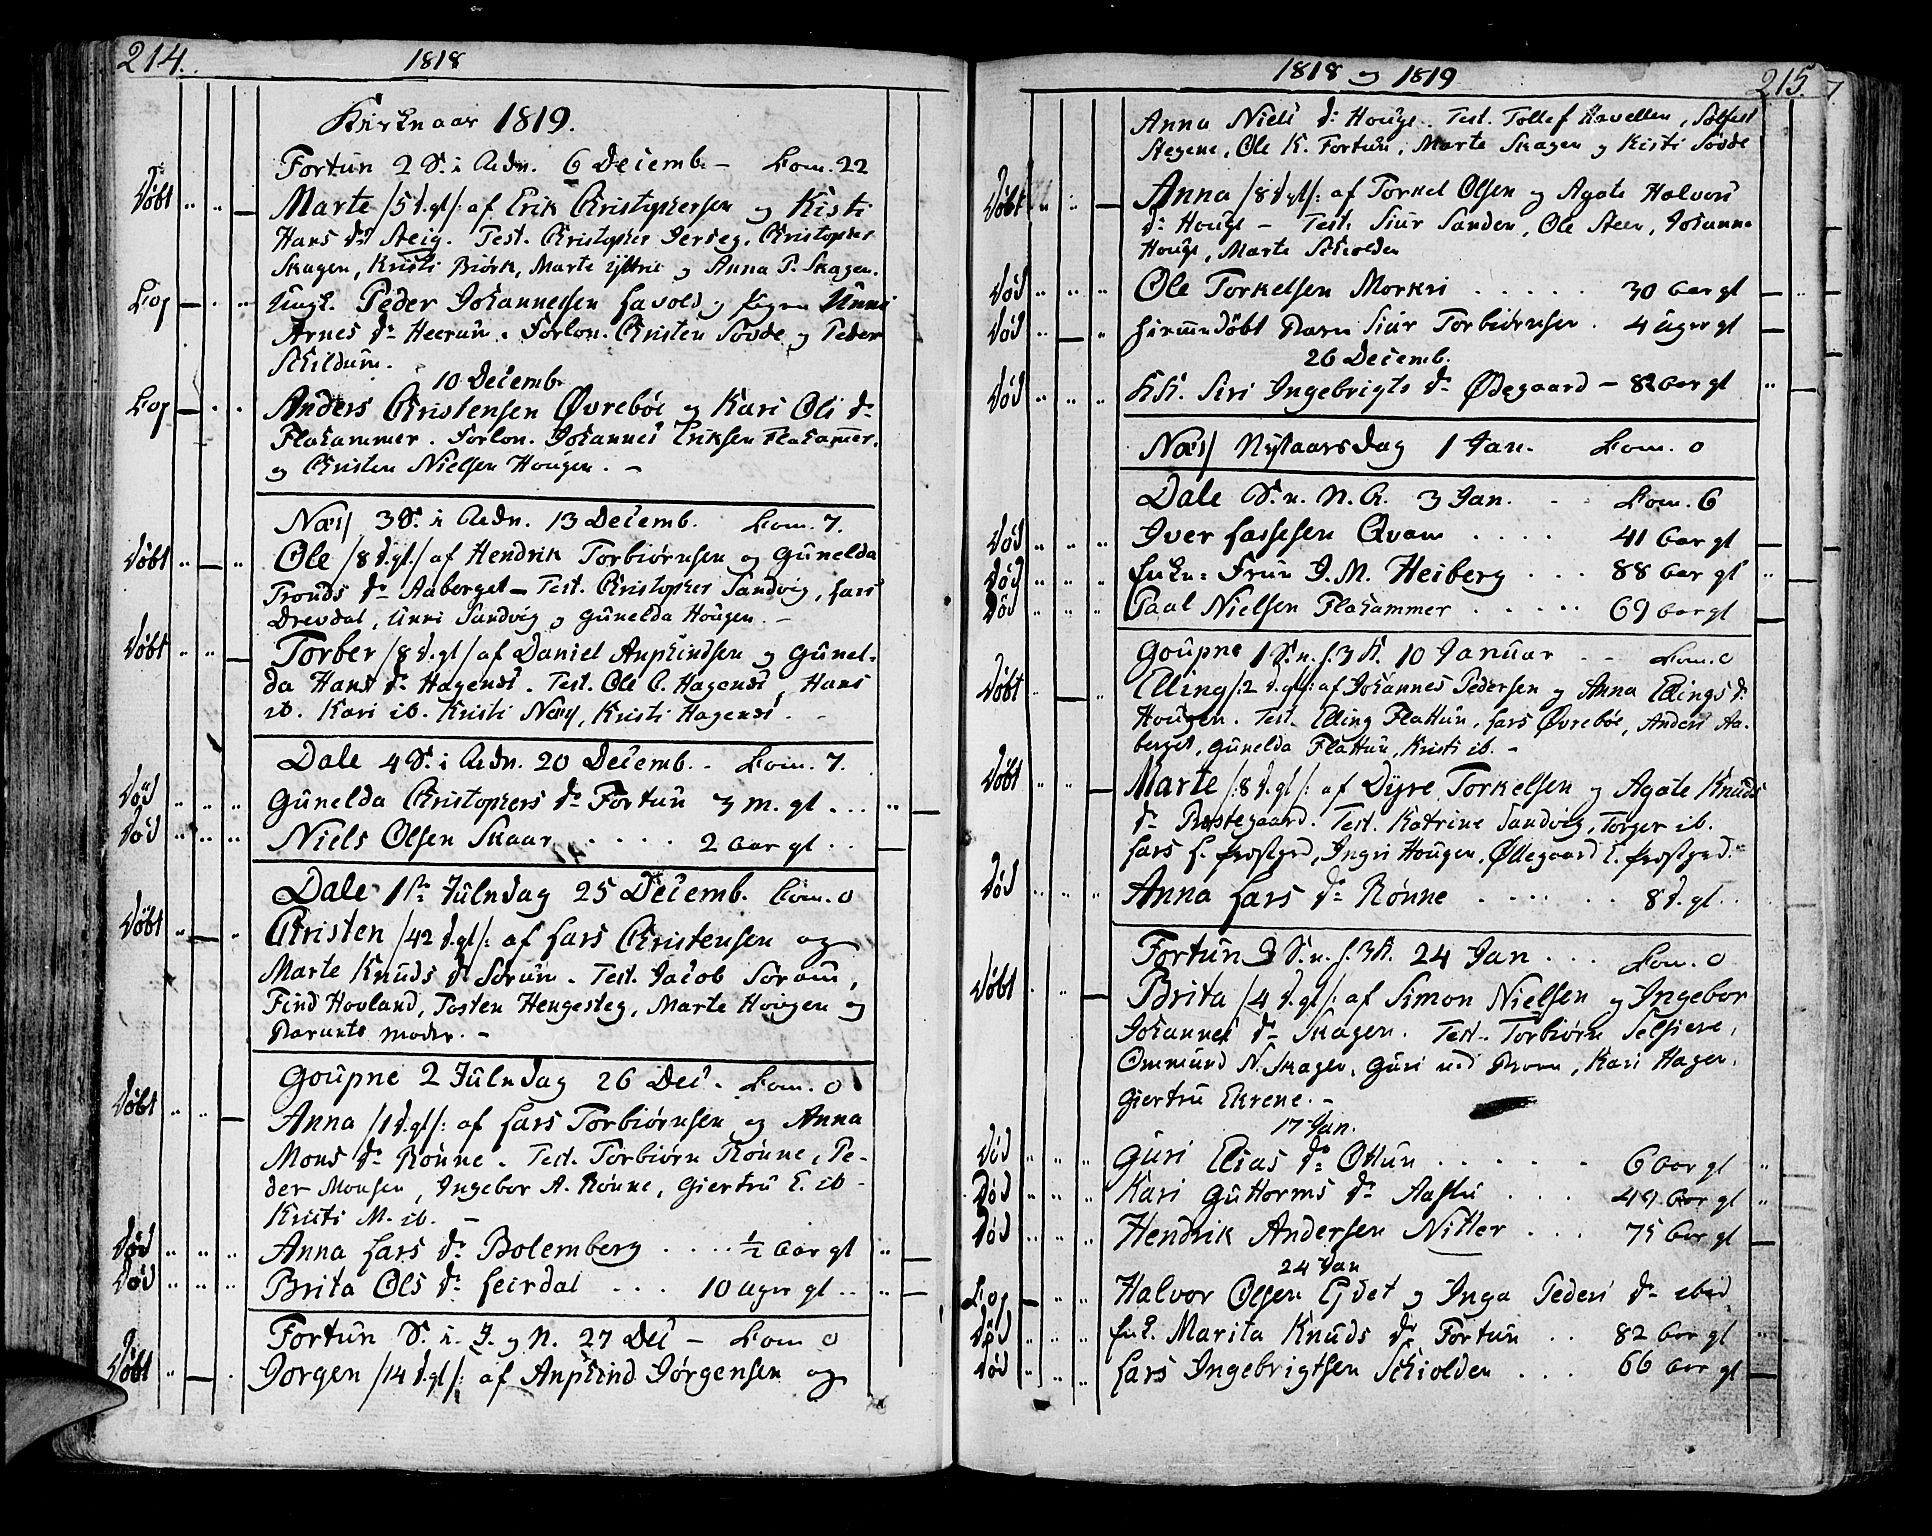 214.
1818
Kirkeaar 1819.
Fortun 2 S. i Advn. 6 Decemb. – Com. 22
Døbt Marte /5 d. gl/: af Erik Christophersen og Kisti
Hans dr Steig. Test. Christopher Berseg, Christopher
Skagen, Kristi Biørk, Marte Yttrie og Anna P. Skagen.
Cop Ungk. Peder Johannessen Havold og Pigen Unni
Arnes dr Heerum. Forlov. Christen Sovde og Peder
Schildum.
10 Decemb.
Cop Anders Christensen Øvrebøe og Kari Ols dr
Flahammer. Forlov. Johannes Eriksen Flahamer.
og Christen Nielsen Hougen. –
Næss 3 S. i Advn. 13 Decemb. Com. 7.
Døbt Ole /8 d. gl./ af Hendrik Torbiørnsen og Gunelda
Tronds dr Aaberget – Test. Christopher Sandvig, Lars
Drevdal, Unni Sandvig og Gunelda Hougen. –
Døbt Torber /8 d. gl/ af Daniel Anphindsen og Gunel-
da Hans dr Hagenes. Test. Ole C. Hagenes, Hans
ib. Kari ib. Kristi Næss, Kristi Hagenes. –
Dale 4 S. i Advn. 20 Decemb. – Com. 7.
Død Gunelda Christophers dr Fortun 3 m. gl ...
Død Niels Olsen Skaar ..... 2 aar gl ..
Dale 1ste Juledag 25 Decemb. Com. 0
Døbt Christen /42 d. gl/: af Lars Christensen og
Marte Knuds dr Sorum. Test. Jacob Sorum,
Find Hovland, Tosten Hengesteg, Marte Hougen og
Barnets moder. –
Goupne 2 Juledag 26 Dec. Com. 0
Døbt Anna /1 d. gl/: af Lars Torbiørnsen og Anna
Mons dr Rønne. Test. Torbiørn Rønne, Pe-
der Monsen, Ingebor A. Rønne, Giertru E. ib –
Kristi M. ib. –
Død Anna Lars dr Bolemberg .... ½ aar gl
Død Brita Ols dr Leirdal ... 10 uger gl ..
Fortun S. i. J. og N. 27 Dec – Com 0
Døbt Jorgen /14 d. gl/: af Anphind Jørgensen og
1818 og 1819
215.
Anna Niels dr Houge. Test. Tollef Ærvellen, Solfest
Stegene, Ole K. Fortun, Marte Skagen og Kisti Sovde
Døbt Anna /8 d. gl/: af Torkel Olsen og Agate Halvors
dr Houge – Test. Siur Sanden, Ole Steen, Johanne
Houge, Marte Schiolden
Død Ole Torkelsen Morkri ..... 30 aar gl
Død Hiemmedøbt Barn Siur Torbiørnsen . 4 uger gl
26 Decemb.
Død Siri Ingebrigts dr Ødegaard – 82 aar gl
Næss Nytaarsdag 1 Jan. Com. 0
Dale S. n. N. A. 3 Jan. Com. 6
Død Iver Lassesen Qvam .... 41 aar gl
Død Enke-Frue J. M. Heiberg ... 88 aar gl
Død Paal Nielsen Flahammer ..... 69 aar gl
Goupne 1 S. n. h. 3 K. 10 Januar .. Com. 0
Døbt Elling /:2 d. gl/: af Johannes Pedersen og Anna Ellings dr
Hougen. Test. Elling Flattun, Lars Øvrebøe, Anders Aa-
berget, Gunelda Flattun, Kristi ib. –
Døbt Marte /:8 d. gl/: af Dyre Torkelsen og Agate Knuds
dr Prestegaard. Test. Katrine Sandvig, Torger ib.
Lars H. Prestgrd, Ingri Hougen, Øllegaard E. Prestgrd.
Død Anna Lars dr Rønne ...... 8 d. gl ..
Fortun 3 S. n. h. 3 K. 24 Jan ... Com. 0
Døbt Brita /4 d. gl/: af Simon Nielsen og Ingebor
Johannes dr Skagen. Test. Torbiørn Selsiere,
Ommund N. Skagen, Guri Kari Hagen,
Giertru Ekrene. –
17 Jan.
Død Guri Elias dr Ottun ..... 6 aar gl
Død Kari Guttorms dr Aasen ... 49 aar gl
Død Hendrik Andersen Nitter ... 75 aar gl
24 Jan
Cop Halvor Olsen Eydet og Inga Peders dr ebid
Død Enk. Marita Knuds dr Fortun .. 82 aar gl
Død Lars Ingebrigtsen Schiolden ... 66 aar gl